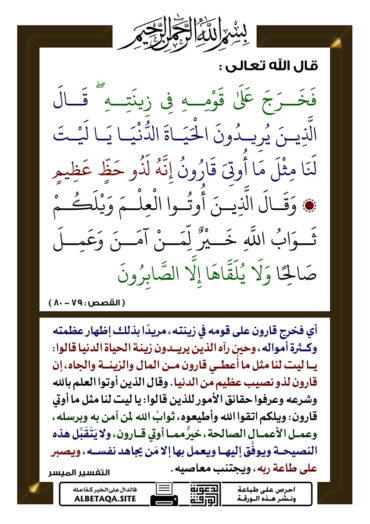 بسم الله الرحمن الرحيم
قال الله تعالى :
فَخَـرَجَ عَلَىٰ قَوْمِـهِ فِى زِينَتِـهِ ۖ قَـالَ
الَّذِيـنَ يُرِيـدُونَ الْحَيَـاةَ الدُّنْيَـا يَـا لَيْـتَ
لَنَا مِثْلَ مَا أُوتِىَ قَارُونُ إِنَّهُ لَذُو حَظٍّ عَظِيمٍ
۞ وَقَـالَ الَّذِيـنَ أُوتُـوا الْعِلْـمَ وَيْلَكُـمْ
ثَـوَابُ اللَّهِ خَـيْرٌ لِّمَـنْ آمَـنَ وَعَمِـلَ
صَالِحًا وَلَا يُلَقَّاهَا إِلَّا الصَّابِرُونَ
( القصص : ٧٩ – ٨٠ )
أي فخرج قارون على قومه في زينته ، مريدًا بذلك إظهار عظمته
وكـثرة أمواله ، وحين رآه الذين يريـدون زينة الحياة الدنيا قالوا :
يـا ليت لنا مثل ما أُعطـي قارون مـن المال والزينـة والجاه، إن
قارون لذو نصيب عظيم من الدنيا . وقال الذين أوتوا العلم بالله
وشرعه وعرفوا حقائق الأمور للذين قالوا : يا ليت لنا مثل ما أوتي
قارون : ويلكم اتقوا الله وأطيعوه ، ثوابُ الله لمن آمن به وبرسله ،
وعمـل الأعمـال الصالحة ، خيرٌ ممـا أوتي قـارون ، ولا يَتَقَبَّل هذه
النصيحـة ويوفَّق إليهـا ويعمل بها إلا مَن يجاهد نفسـه ، ويصبر
على طاعة ربه ، ويجتنب معاصيه .
التفسير الميسر
احرص على طباعة
ونشر هذه الورقة
الدعوية
الورقة
فالدال على الخير كفاعله
ALBETAQA.SITE